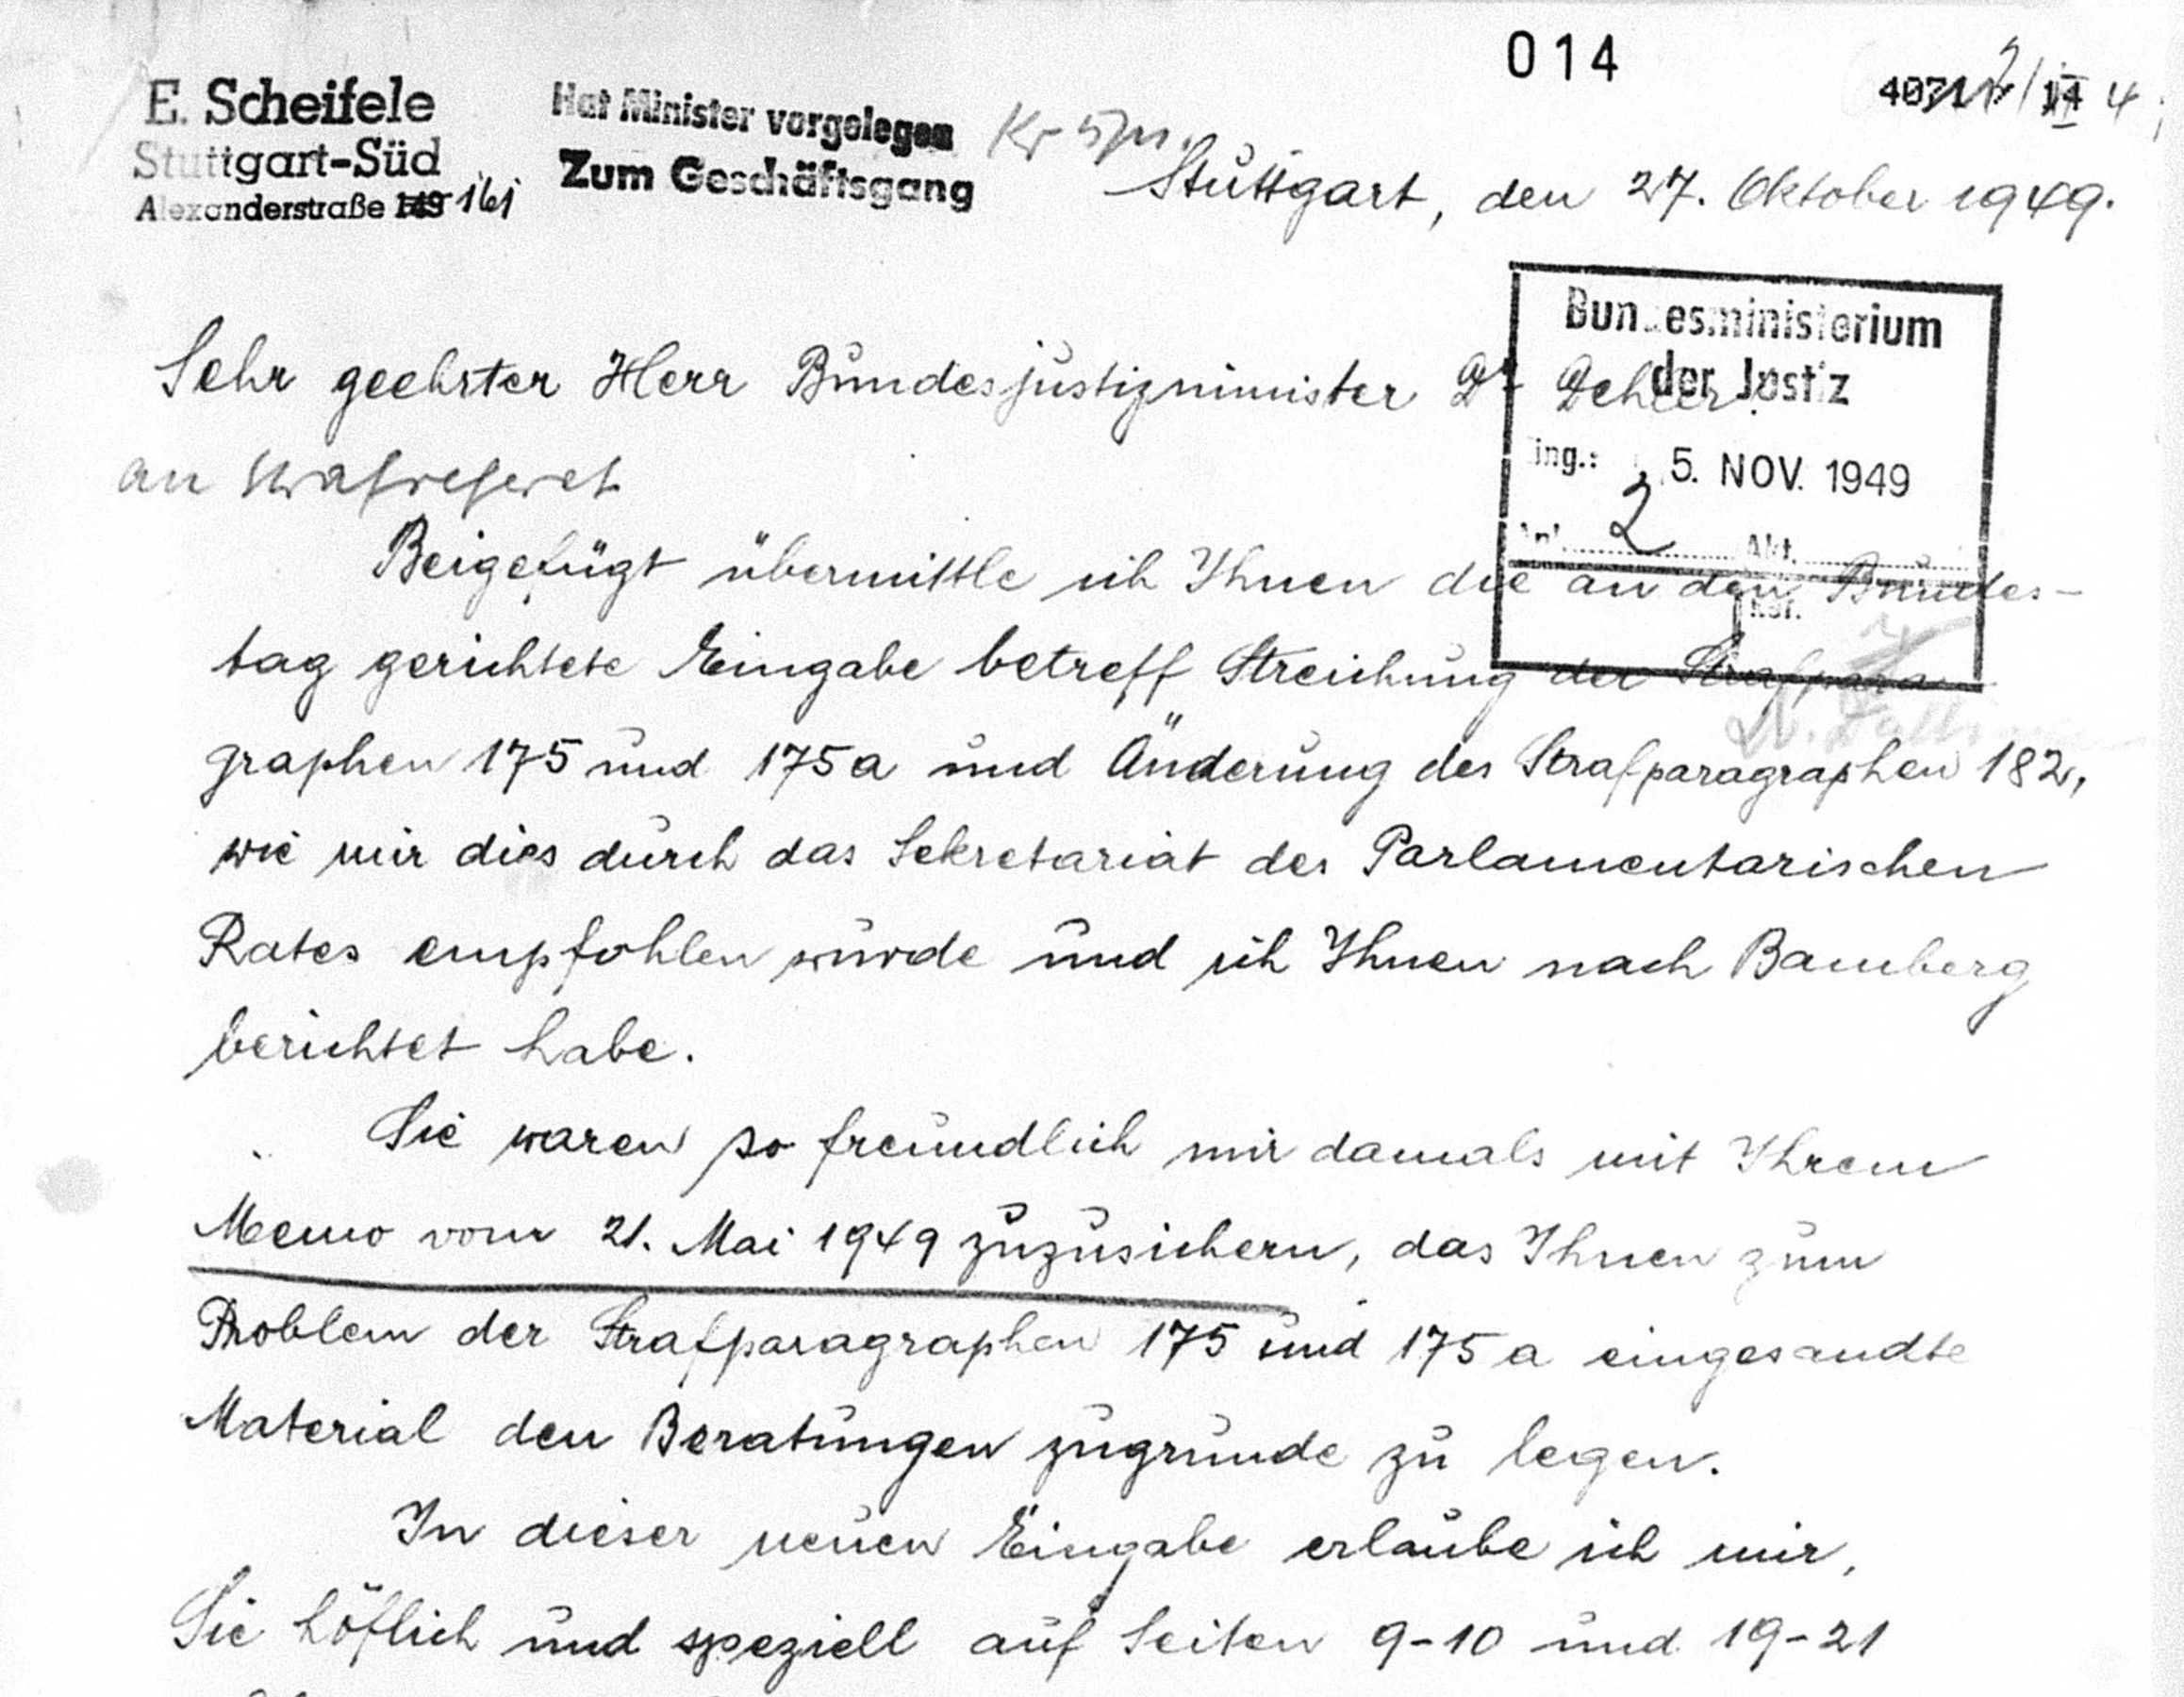 014
E. Scheifele
Stuttgart-Süd
Alexanderstraße 149 161
Hat Minister vorgelegen
Zum Geschäftsgang
Stuttgart, den 27. Oktober 1949.
Bundesministerium
der Justiz
Eing.: 5. NOV. 1949
Anl. 2 Akt.
Sehr geehrter Herr Bundesjustizminister Dr Dehler!
an Strafreferat
Beigefügt übermittle ich Ihnen die an den Bundes-
tag gerichtete Eingabe betreff Streichung der Strafpara-
graphen 175 und 175a und Änderung des Strafparagraphen 182,
wie mir dies durch das Sekretariat des Parlamentarischen
Rates empfohlen wurde und ich Ihnen nach Bamberg
berichtet habe.
Sie waren so freundlich mir damals mit Ihrem
Memo vom 21. Mai 1949 zuzusichern, das Ihnen zum
Problem der Strafparagraphen 175 und 175a eingesandte
Material den Beratungen zugrunde zu legen.
In dieser neuen Eingabe erlaube ich mir,
Sie höflich und speziell auf Seiten 9-10 und 19-21